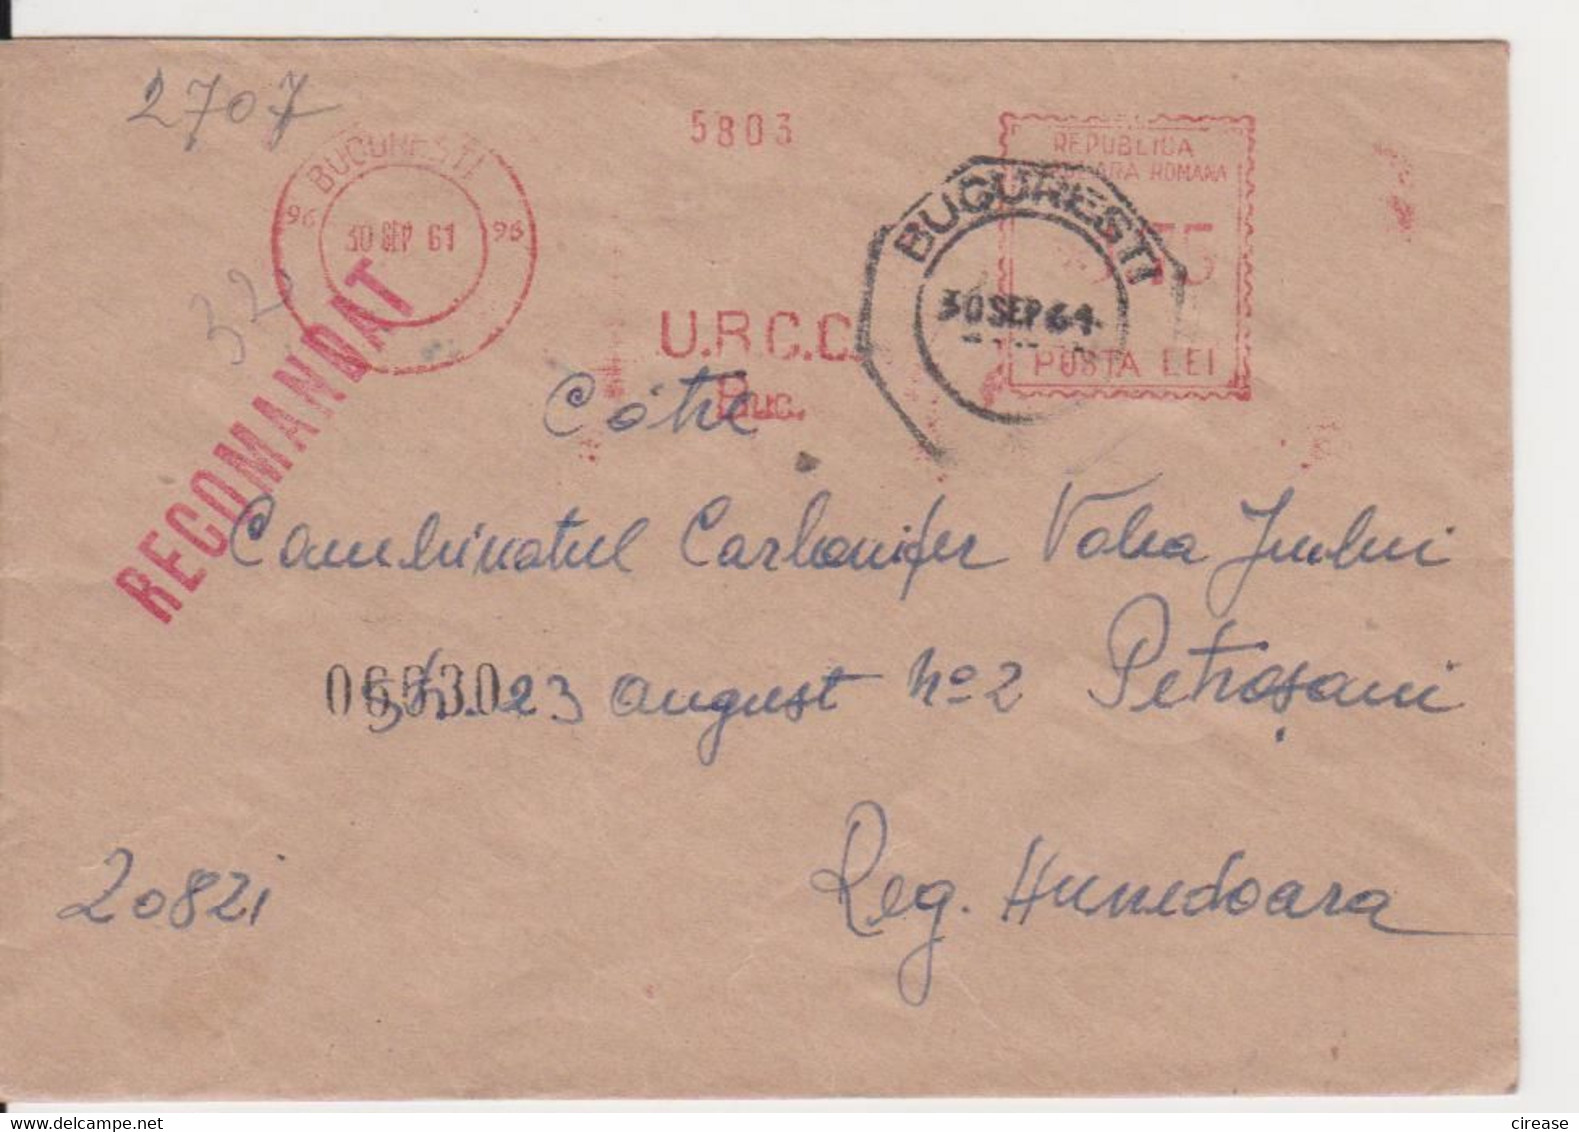 2707
5803
BUCURESTI
96 30 SEP 61 96
REPUBLICA
ROMANA
U.R.C.C.
Buc.
POSTA LEI
BUCURESTI
30 SEP 61
32
RECOMANDAT
Către
Combinatul Carbonifer Valea Jiului
06630
Str. 23 August No 2 Petroșani
Reg. Hunedoara
2082i
cirease